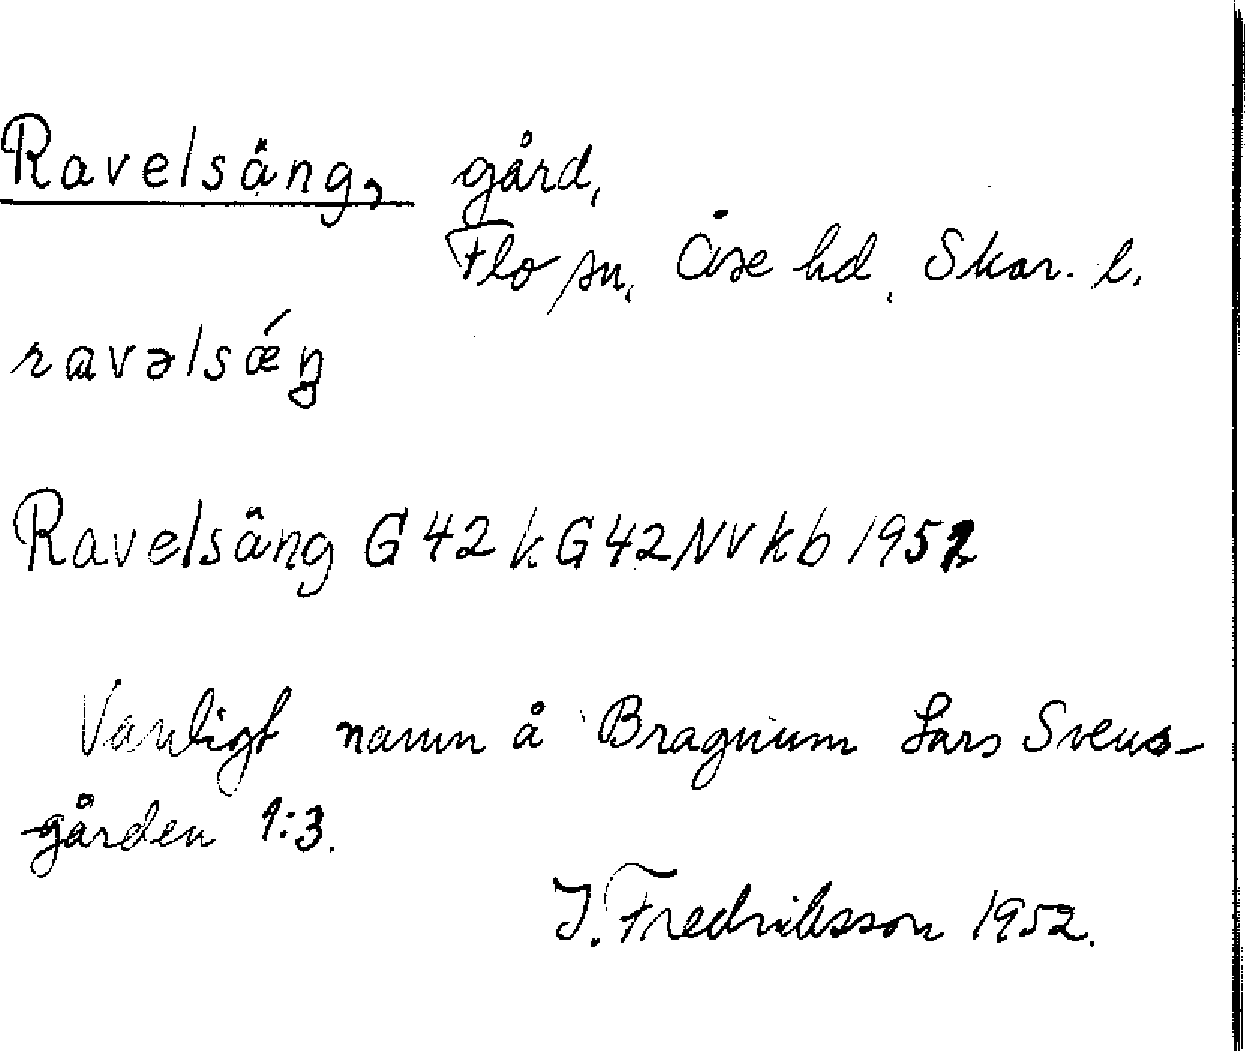 Ravelsäng, gård,
Flo sn, Åse hd, Skar. l.
ravəlsǽŋ
Ravelsäng G42kG42NVkb 1952
Vanligt namn å Bragnum Lars Svens-
gården 1:3.
J. Fredriksson 1952.